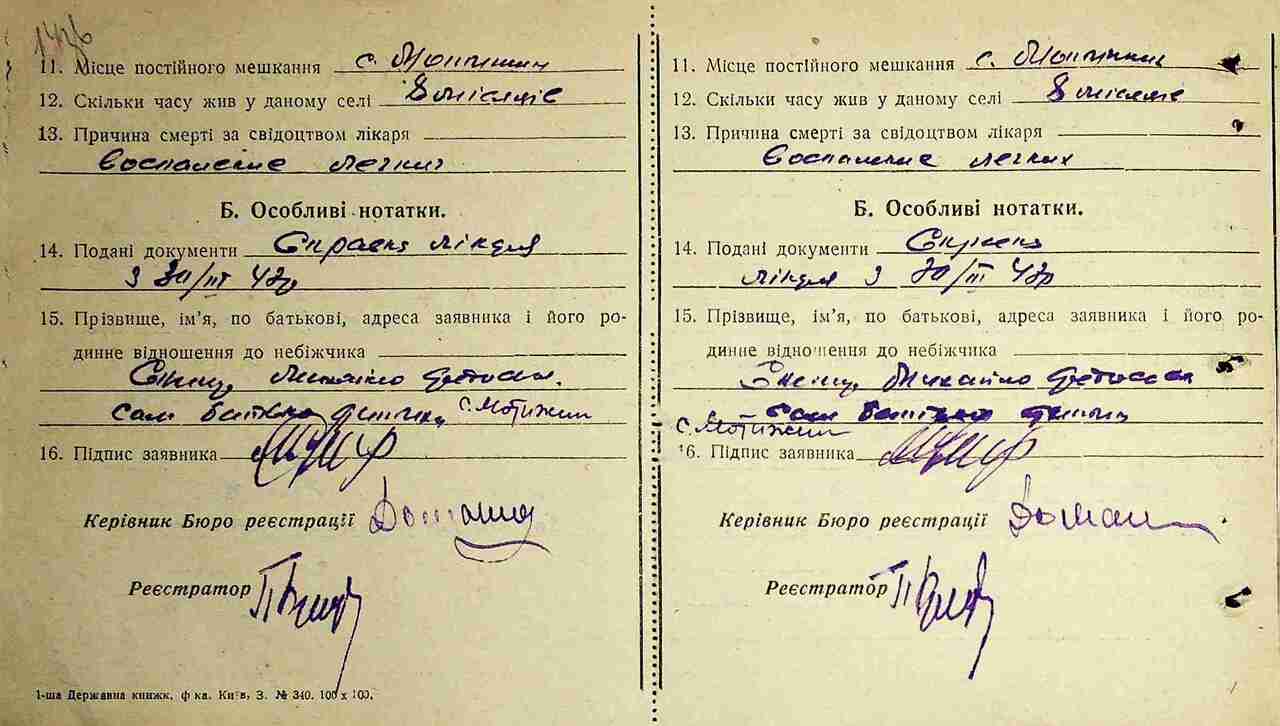 11. Місце постійного мешкання с. Мотижин
12. Скільки часу жив у даному селі 8 місяців
13. Причина смерті за свідоцтвом лікаря
Воспаление легких
Б. Особливі нотатки.
14. Подані документи Справка лікаря
з 30/III 42р
15. Прізвище, ім'я, по батькові, адреса заявника і його ро-
динне відношення до небіжчика
Михайло
сам батько с. Мотижин
16. Підпис заявника
Керівник Бюро реєстрації
Реєстратор
1-ша Державна книжк. ф-ка. Київ, З. № 340. 100 х 100.
11. Місце постійного мешкання с. Мотижин
12. Скільки часу жив у даному селі 8 місяців
13. Причина смерті за свідоцтвом лікаря
Воспаление легких
Б. Особливі нотатки.
14. Подані документи Справка
лікаря з 30/III 42р
15. Прізвище, ім'я, по батькові, адреса заявника і його ро-
динне відношення до небіжчика
Михайло
сам батько
с. Мотижин
16. Підпис заявника
Керівник Бюро реєстрації
Реєстратор